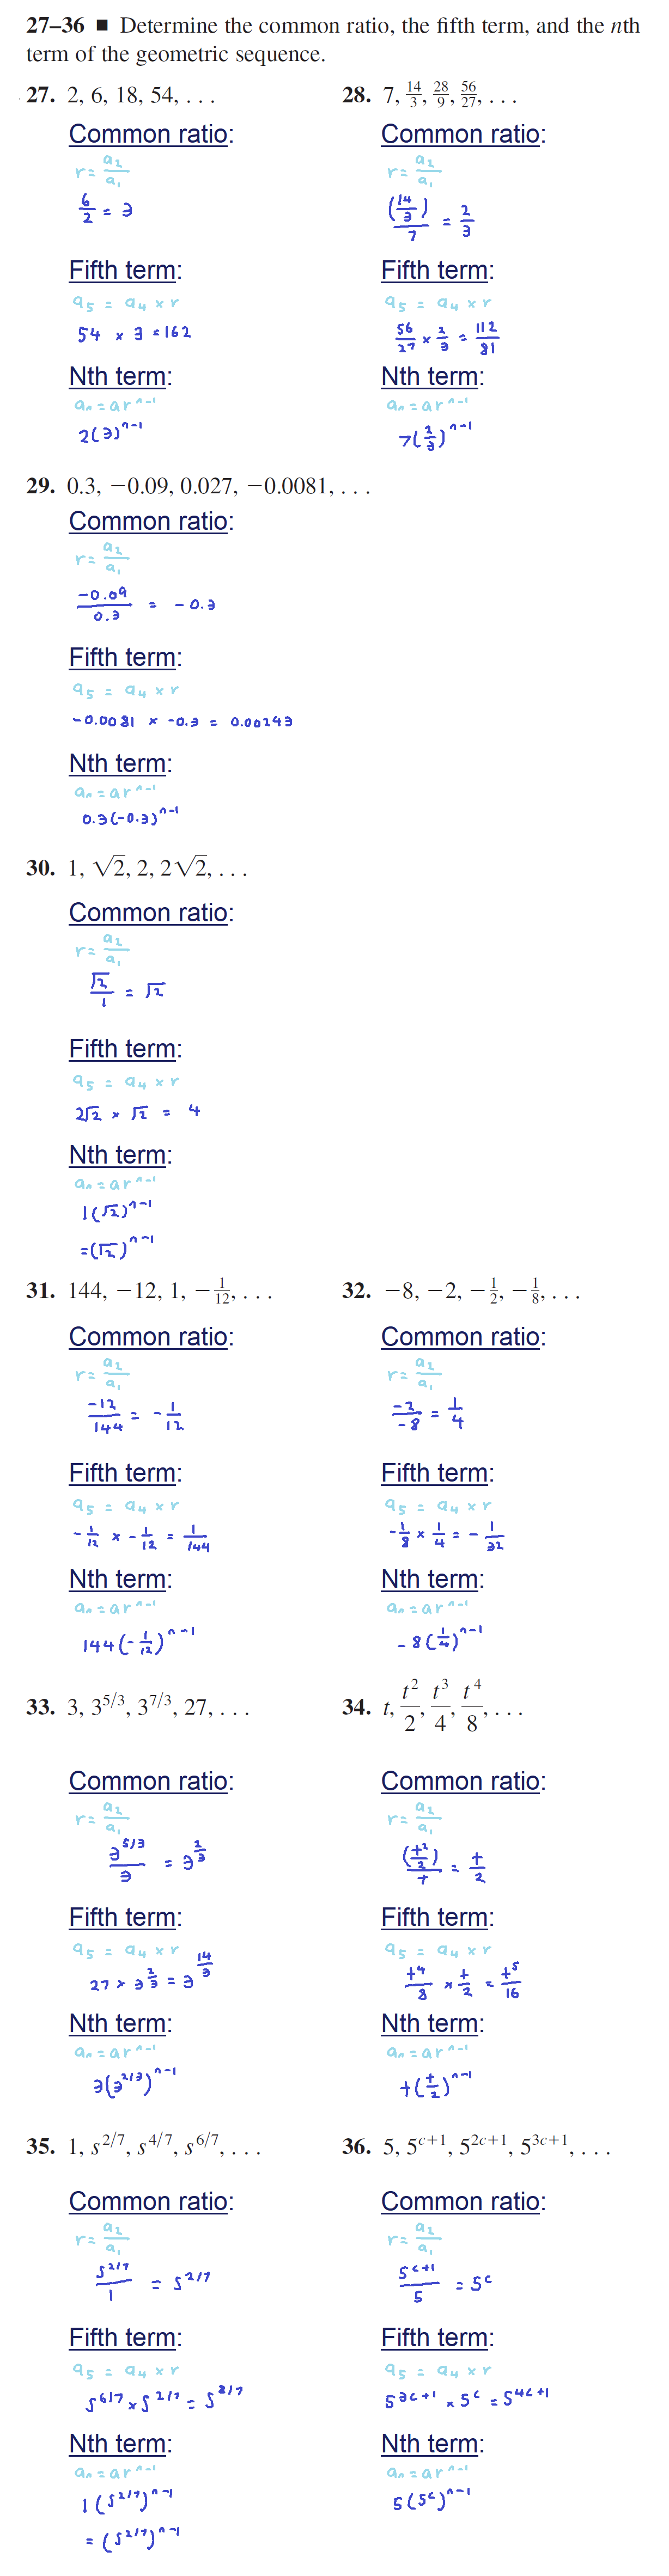 27–36 ■ Determine the common ratio, the fifth term, and the nth
term of the geometric sequence.
27. 2, 6, 18, 54, . . .
Common ratio:
r = a₂/a₁
6/2 = 3
Fifth term:
a₅ = a₄ × r
54 × 3 = 162
Nth term:
aₙ = ar^(n-1)
2(3)^(n-1)
28. 7, 14/3, 28/9, 56/27, . . .
Common ratio:
r = a₂/a₁
(14/3)/7 = 2/3
Fifth term:
a₅ = a₄ × r
56/27 × 2/3 = 112/81
Nth term:
aₙ = ar^(n-1)
7(2/3)^(n-1)
29. 0.3, −0.09, 0.027, −0.0081, . . .
Common ratio:
r = a₂/a₁
-0.09/0.3 = -0.3
Fifth term:
a₅ = a₄ × r
-0.0081 × -0.3 = 0.00243
Nth term:
aₙ = ar^(n-1)
0.3(-0.3)^(n-1)
30. 1, √2, 2, 2√2, . . .
Common ratio:
r = a₂/a₁
√2/1 = √2
Fifth term:
a₅ = a₄ × r
2√2 × √2 = 4
Nth term:
aₙ = ar^(n-1)
1(√2)^(n-1)
=(√2)^(n-1)
31. 144, −12, 1, −1/12, . . .
Common ratio:
r = a₂/a₁
-12/144 = -1/12
Fifth term:
a₅ = a₄ × r
-1/12 × -1/12 = 1/144
Nth term:
aₙ = ar^(n-1)
144(-1/12)^(n-1)
32. −8, −2, −1/2, −1/8, . . .
Common ratio:
r = a₂/a₁
-2/-8 = 1/4
Fifth term:
a₅ = a₄ × r
-1/8 × 1/4 = -1/32
Nth term:
aₙ = ar^(n-1)
-8(1/4)^(n-1)
33. 3, 3^(5/3), 3^(7/3), 27, . . .
Common ratio:
r = a₂/a₁
3^(5/3)/3 = 3^(2/3)
Fifth term:
a₅ = a₄ × r
27 × 3^(2/3) = 3^(14/3)
Nth term:
aₙ = ar^(n-1)
3(3^(2/3))^(n-1)
34. t, t²/2, t³/4, t⁴/8, . . .
Common ratio:
r = a₂/a₁
(t²/2)/t = t/2
Fifth term:
a₅ = a₄ × r
t⁴/8 × t/2 = t⁵/16
Nth term:
aₙ = ar^(n-1)
t(t/2)^(n-1)
35. 1, s^(2/7), s^(4/7), s^(6/7), . . .
Common ratio:
r = a₂/a₁
s^(2/7)/1 = s^(2/7)
Fifth term:
a₅ = a₄ × r
s^(6/7) × s^(2/7) = s^(8/7)
Nth term:
aₙ = ar^(n-1)
1(s^(2/7))^(n-1)
= (s^(2/7))^(n-1)
36. 5, 5^(c+1), 5^(2c+1), 5^(3c+1), . . .
Common ratio:
r = a₂/a₁
5^(c+1)/5 = 5^c
Fifth term:
a₅ = a₄ × r
5^(3c+1) × 5^c = 5^(4c+1)
Nth term:
aₙ = ar^(n-1)
5(5^c)^(n-1)